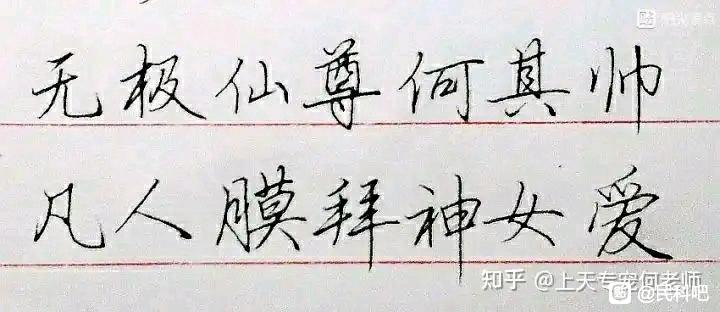 无极仙尊何其帅
凡人膜拜神女爱
知乎 @上天专宠何老师
@民科吧